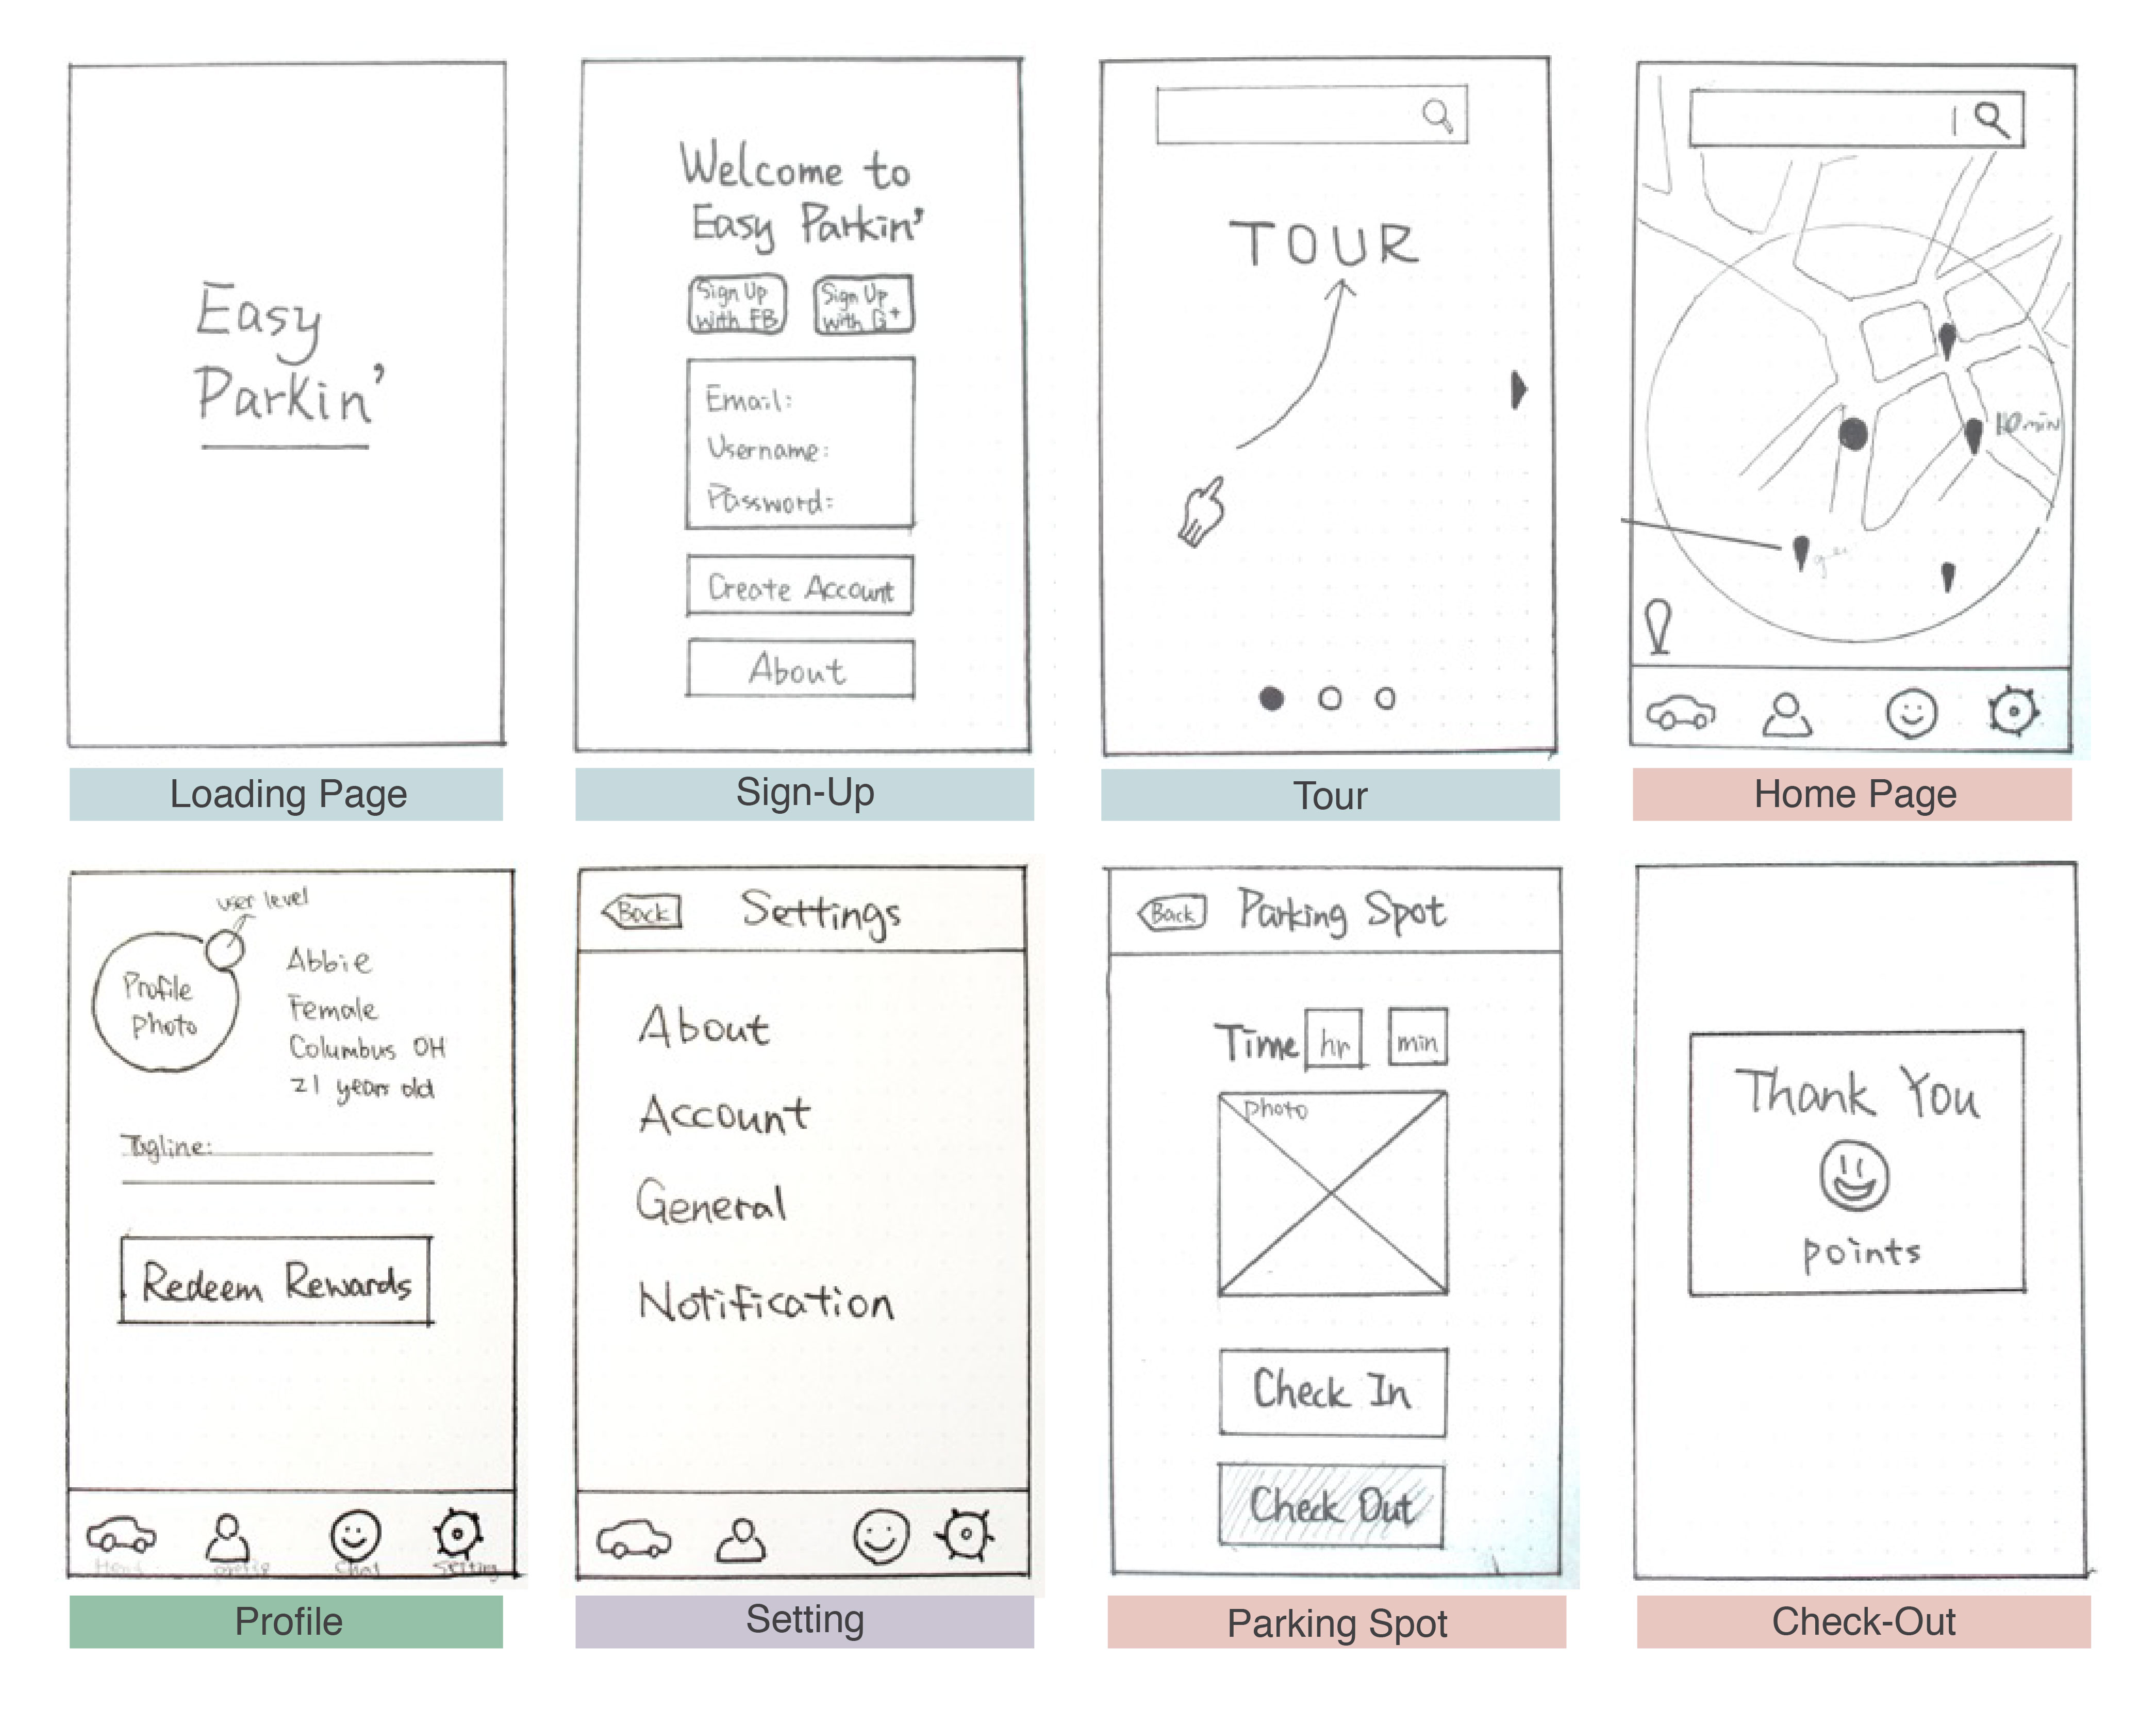 Easy
Parkin'
Loading Page
Welcome to
Easy Parkin'
Sign Up
with FB
Sign Up
with G+
Email:
Username:
Password:
Create Account
About
Sign-Up
TOUR
Tour
10min
Home Page
user level
Profile
photo
Abbie
Female
Columbus OH
21 years old
Tagline:
Redeem Rewards
Chat
Setting
Profile
Back
Settings
About
Account
General
Notification
Setting
Back
Parking Spot
Time hr min
photo
Check In
Check Out
Parking Spot
Thank You
points
Check-Out